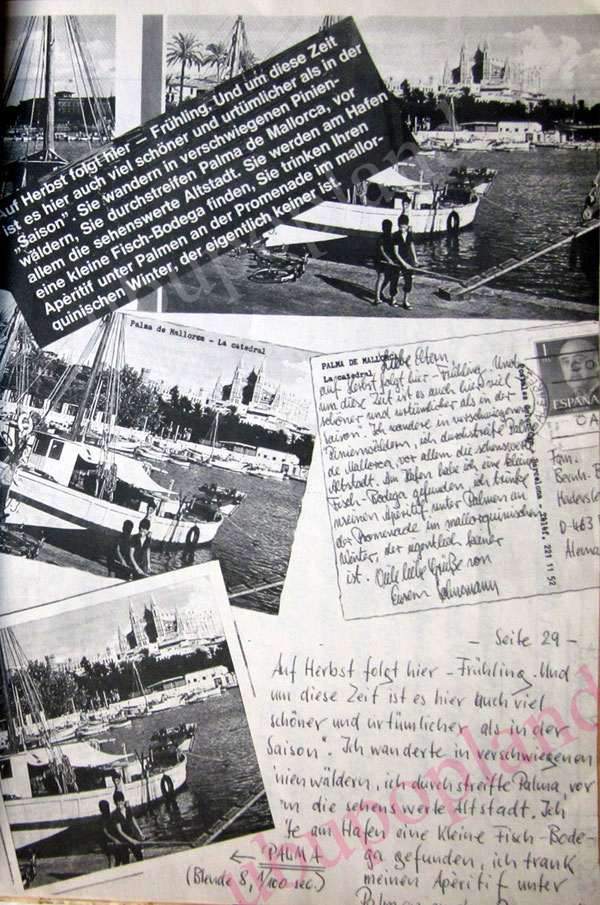 Auf Herbst folgt hier – Frühling. Und um diese Zeit
ist es hier auch viel schöner und urtümlicher als in der
„Saison”. Sie wandern in verschwiegenen Pinien-
wäldern, Sie durchstreifen Palma de Mallorca, vor
allem die sehenswerte Altstadt. Sie werden am Hafen
eine kleine Fisch-Bodega finden, Sie trinken Ihren
Apèritif unter Palmen an der Promenade im mallor-
quinischen Winter, der eigentlich keiner ist.
Palma de Mallorca - La catedral
PALMA DE MALLORCA
La catedral
Liebe Eltern
auf Herbst folgt hier – Frühling. Und
um diese Zeit ist es auch hier viel
schöner und urtümlicher als in der
Saison. Ich wandere in verschwiegenen
Pinienwäldern, ich durchstreife Palma
de Mallorca, vor allem die sehenswerte
Altstadt. Am Hafen habe ich eine kleine
Fisch-Bodega gefunden, ich trinke
meinen Apéritif unter Palmen an
der Promenade im mallorquinischen
Winter, der eigentlich keiner
ist. Viele liebe Grüße von
Eurem
ESPAÑA
Barcelona
221 11 52
Fam.
Bernh. B
D-463
Alema
– Seite 29 –
Auf Herbst folgt hier – Frühling. Und
um diese Zeit ist es hier auch viel
schöner und urtümlicher als in der
Saison". Ich wanderte in verschwiegenen
nienwäldern, ich durchstreifte Palma, vor
die sehenswerte Altstadt. Ich
te am Hafen eine kleine Fisch-Bode-
ga gefunden, ich trank
meinen Apèritif unter
Palmen an der
← PALMA
(Blende 8, 1/100 sec.)
upupopland